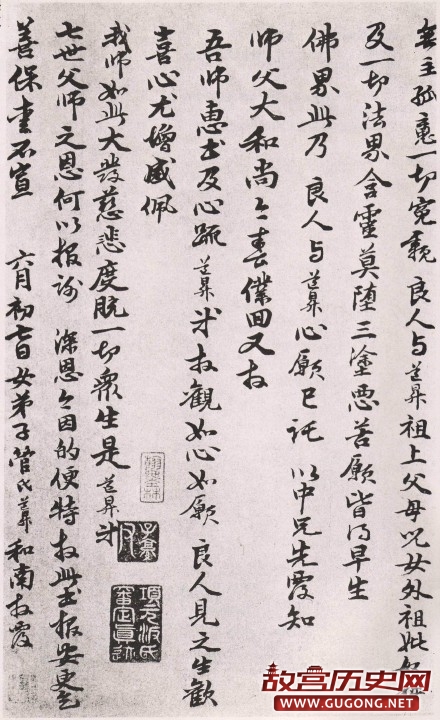 無主孤魂一切冤親 良人与道昇祖上父母兒女外祖妣
及一切法界含靈莫墮三塗惡苦願皆得早生
佛界此乃 良人与道昇心願已託 以中兄先覆知
師父大和尚今春僕回又拜
吾師惠書及心疏道昇等拜觀如心如願 良人見之生歡
喜心尤增感佩
我師如此大發慈悲度脫一切衆生是道昇等
七世父師之恩何以報謝 深恩今因的便特拜此書報安更乞
善保重不宣 六月初七日女弟子管氏道昇和南拜覆
項元汴氏審定真迹
故宫历史网
WWW.GUGONG.NET